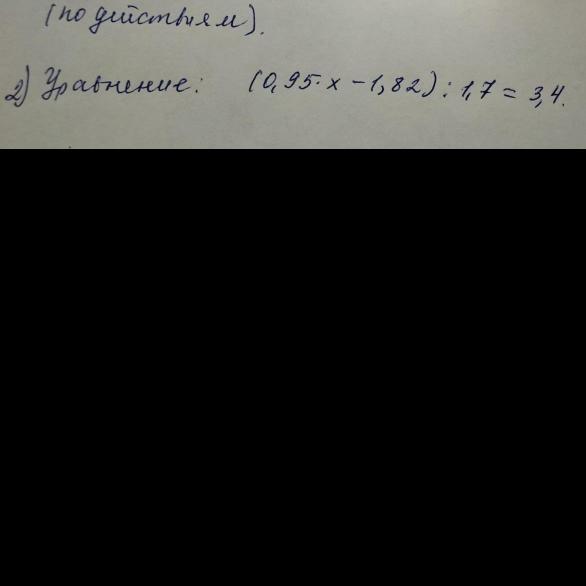 (по действиям).
2) Уравнение: (0,95·х-1,82):1,7=3,4.